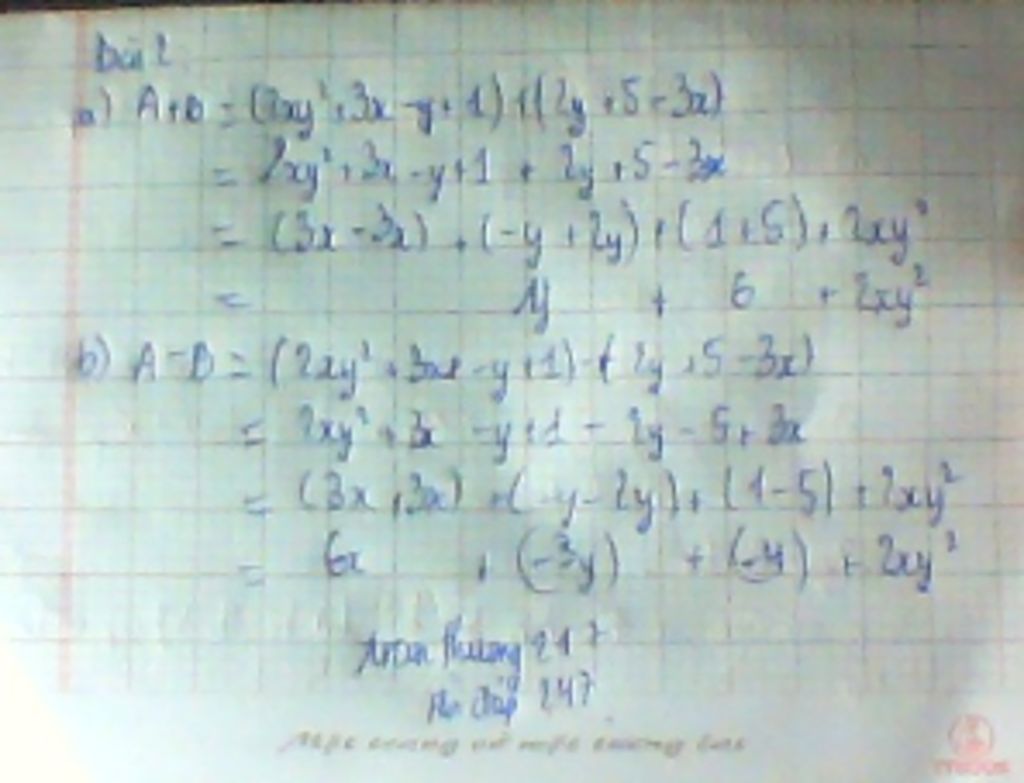 Bài 2
a) A+B = (2xy² + 3x - y + 1) + (2y + 5 - 3x)
= 2xy² + 3x - y + 1 + 2y + 5 - 3x
= (3x - 3x) + (-y + 2y) + (1 + 5) + 2xy²
= 1y + 6 + 2xy²
b) A - B = (2xy² + 3x - y + 1) - (2y + 5 - 3x)
= 2xy² + 3x - y + 1 - 2y - 5 + 3x
= (3x + 3x) + (-y - 2y) + (1 - 5) + 2xy²
= 6x + (-3y) + (-4) + 2xy²
247
247